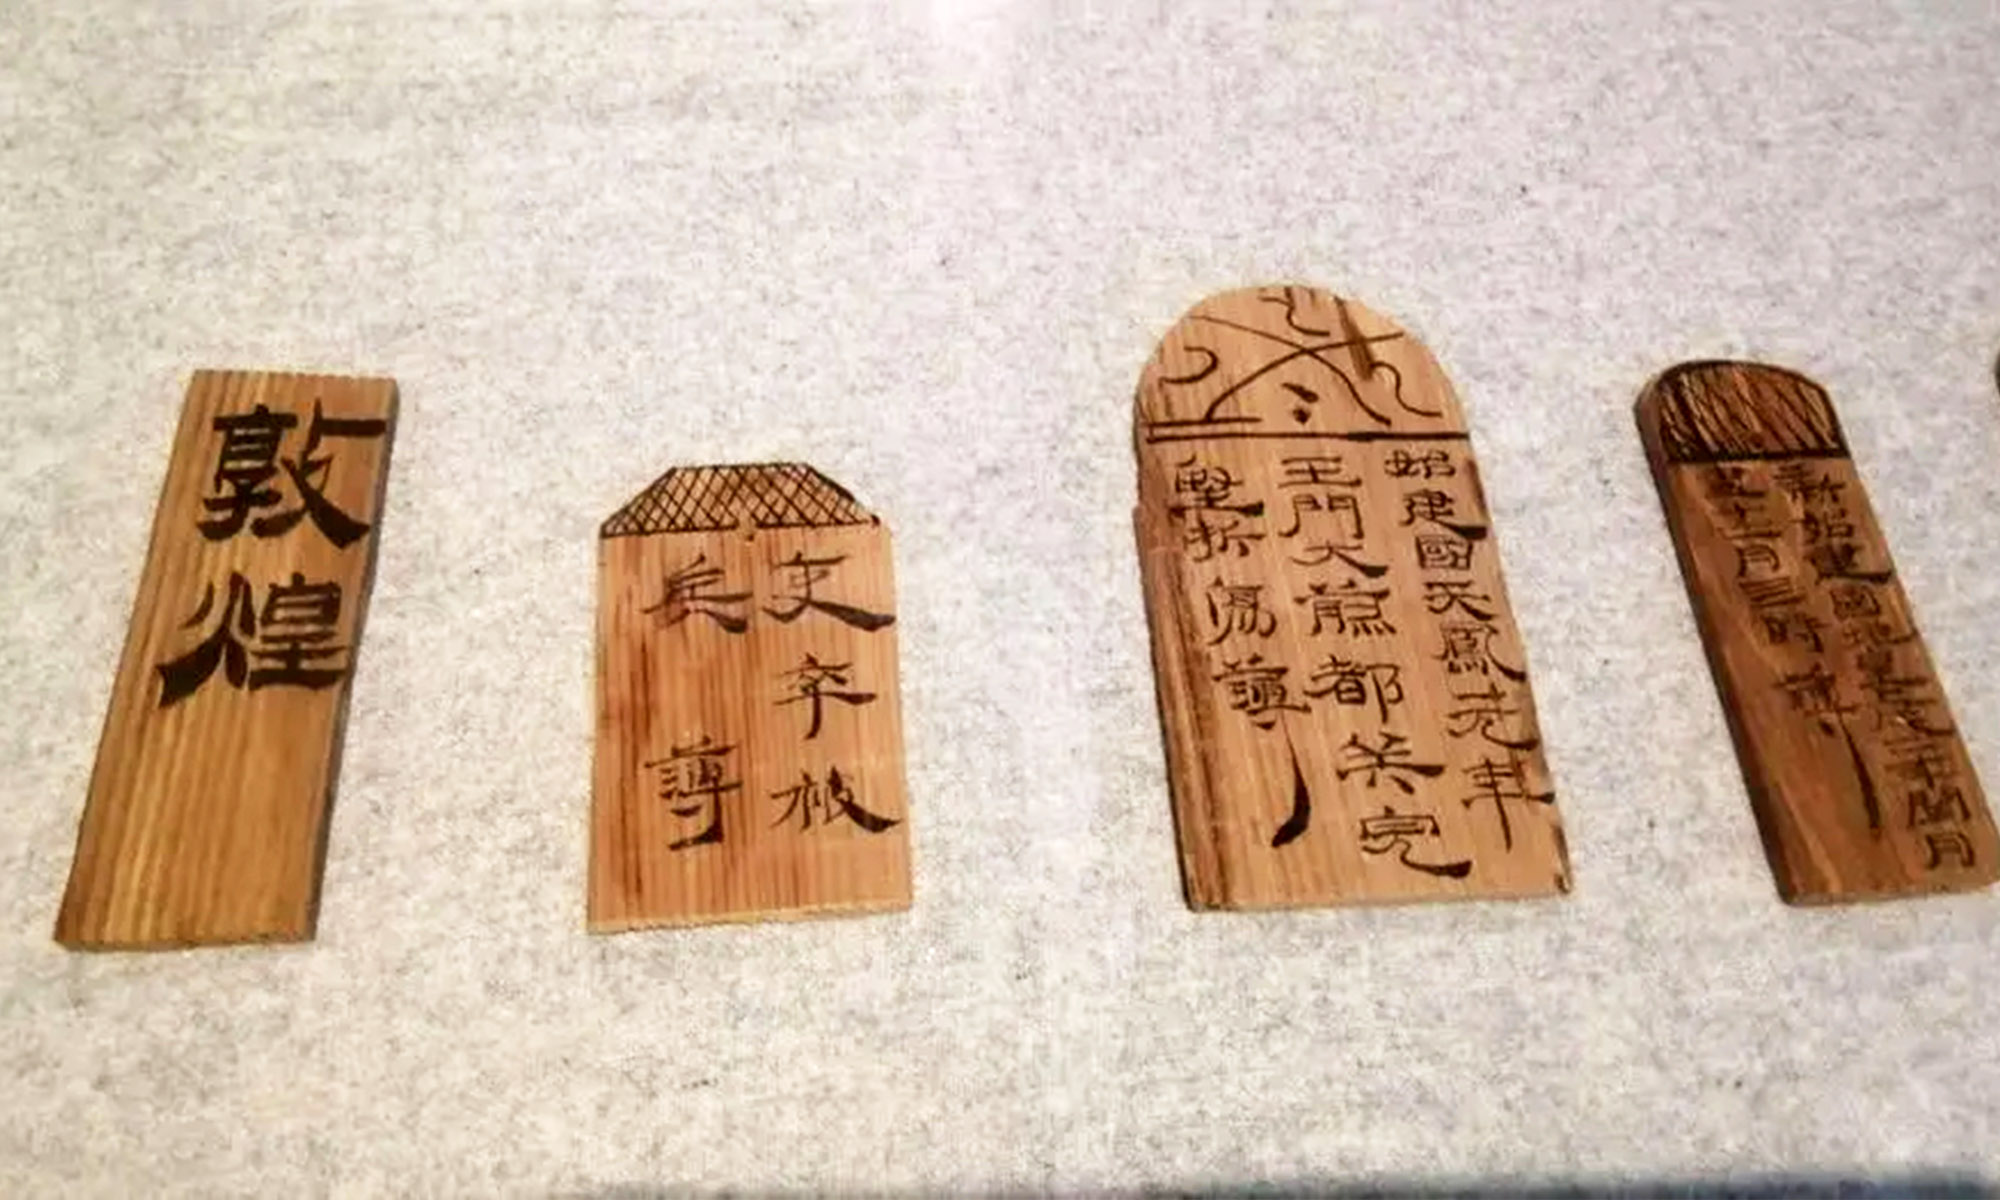 敦煌
吏卒被
兵簿
始建國天鳳元年
玉門大煎都兵完
堅折傷簿
新始建國地皇上戊年閏月
十二月三時簿